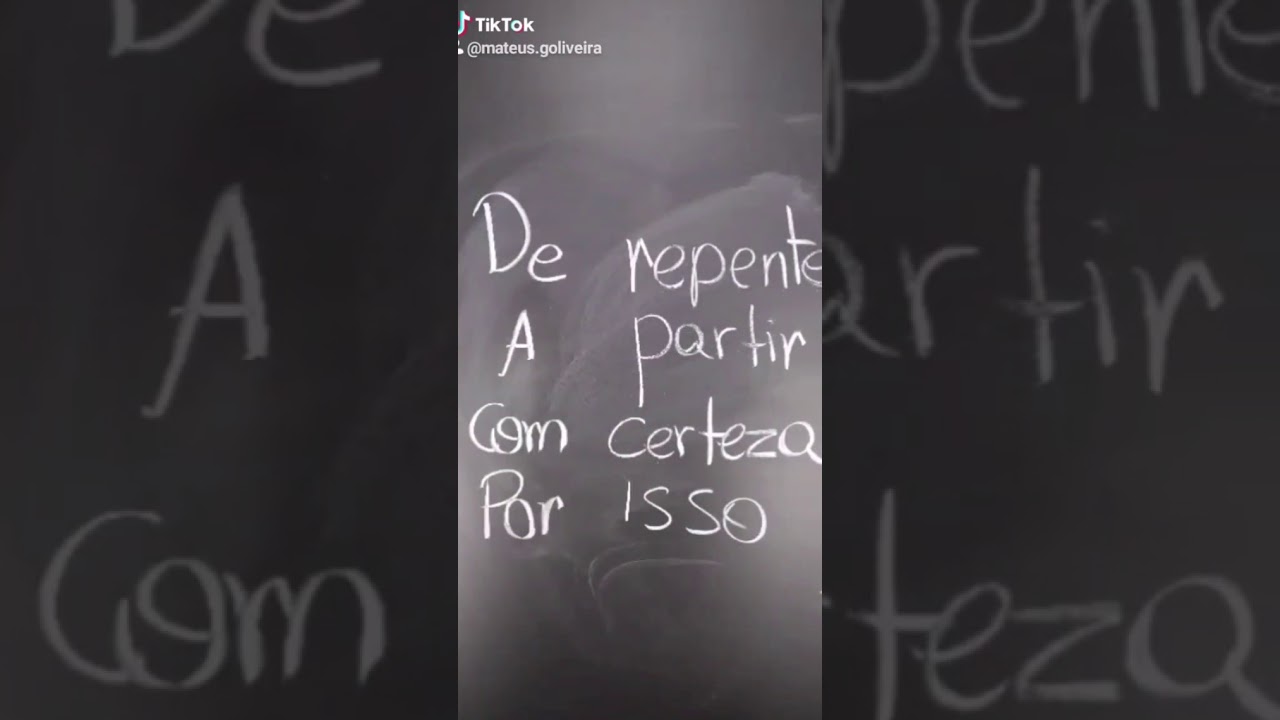 TikTok
@mateus.goliveira
De repente
A partir
Com certeza
Por isso